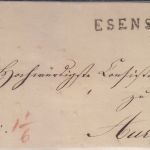 ESENS
Hochwürdigste Consisto
zu
Aur
1/6